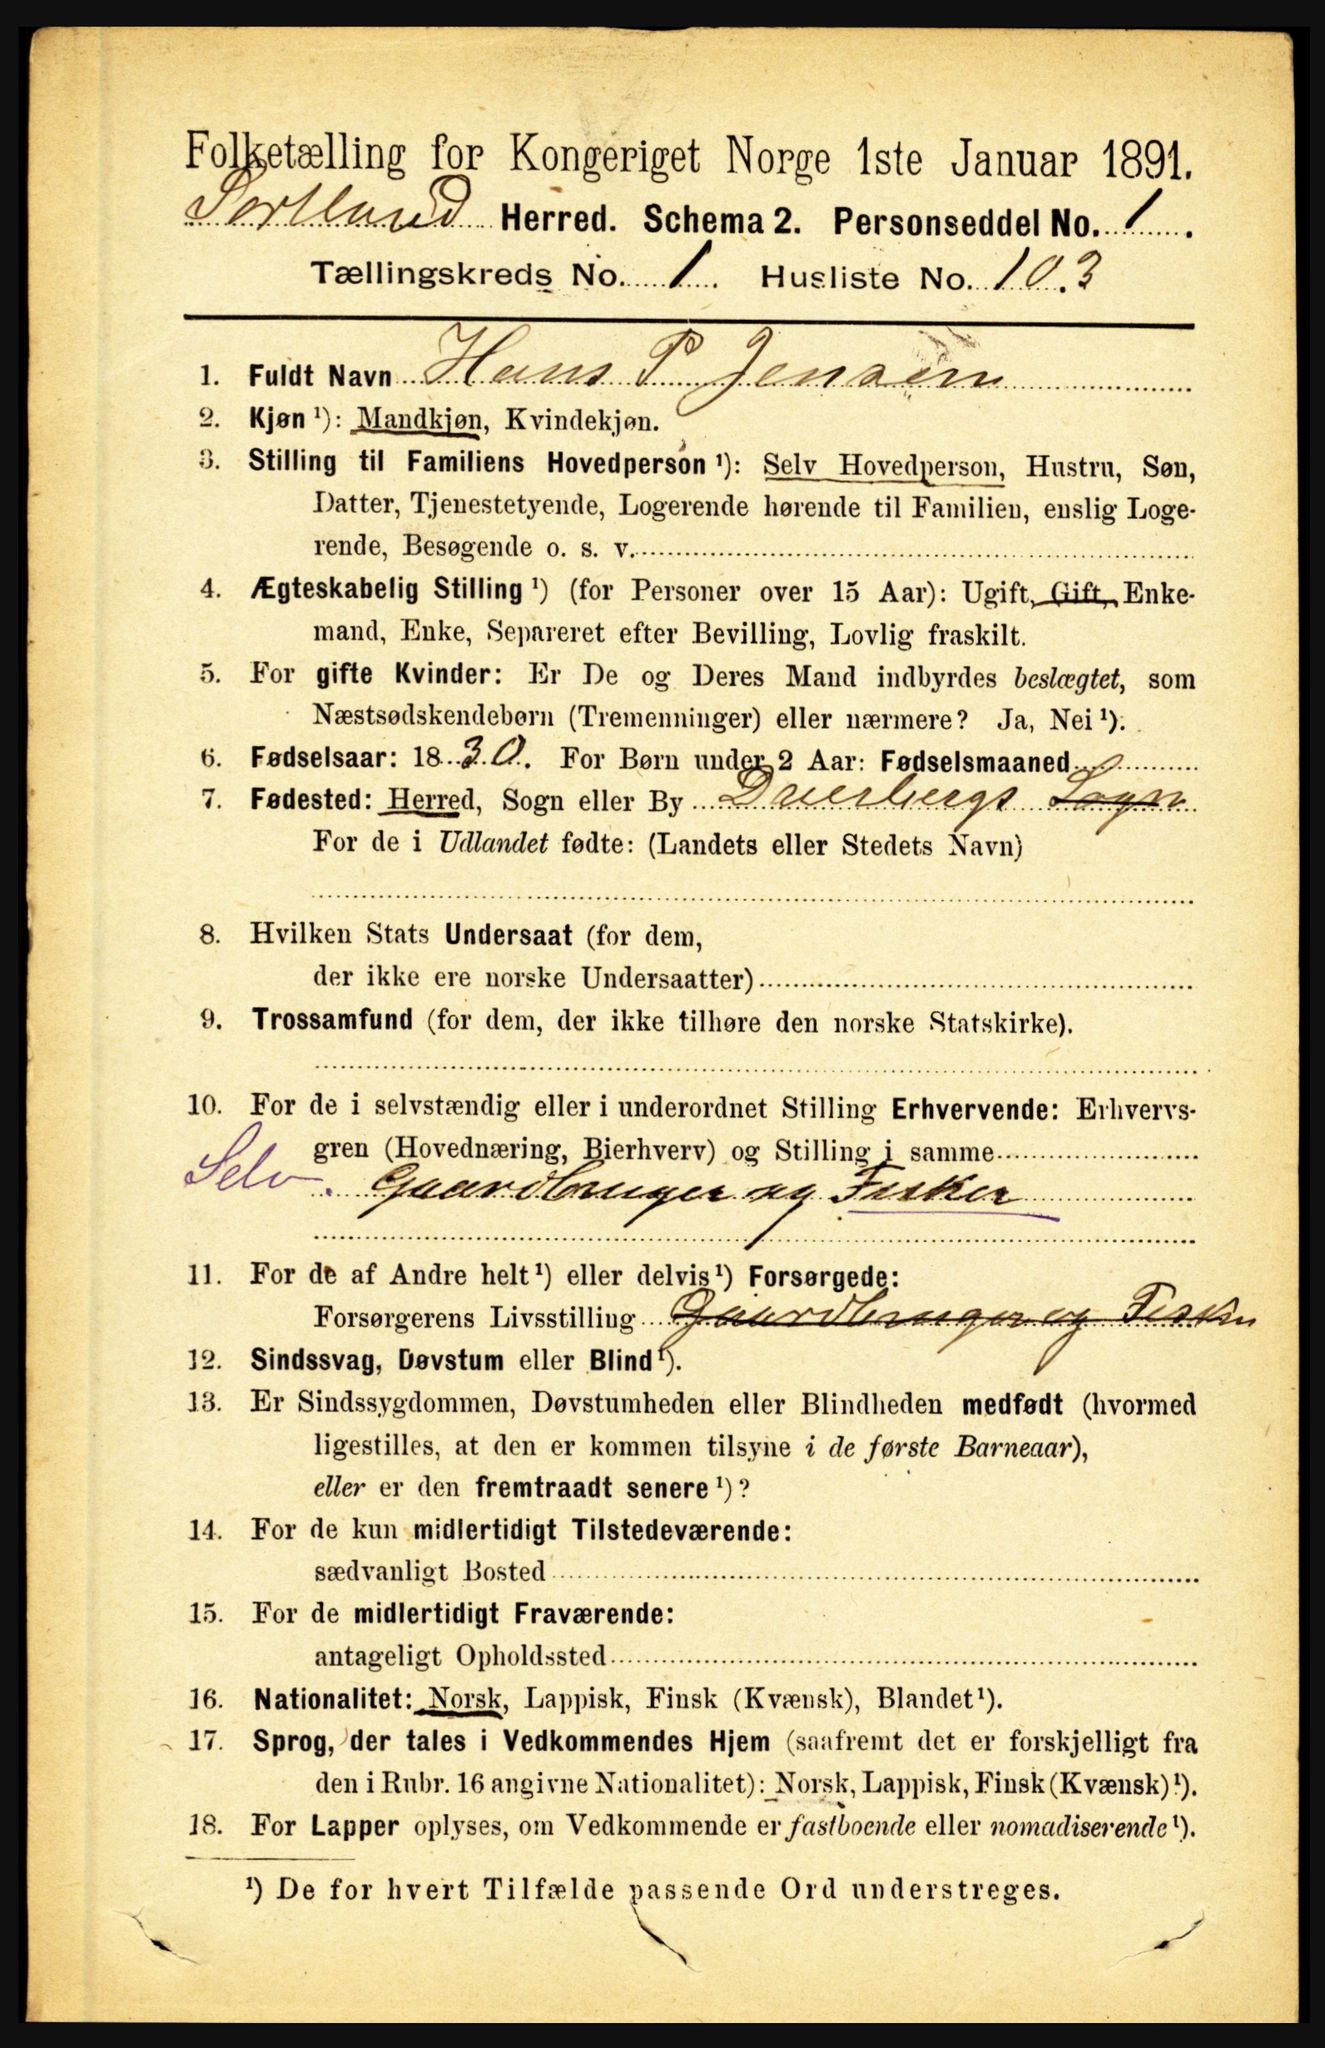 Folketælling for Kongeriget Norge 1ste Januar 1891.
Sortland Herred. Schema 2. Personseddel No. 1.
Tællingskreds No. 1. Husliste No. 103
1. Fuldt Navn Hans P Jensen
2. Kjøn ¹): Mandkjøn, Kvindekjøn.
3. Stilling til Familiens Hovedperson ¹): Selv Hovedperson, Hustru, Søn,
Datter, Tjenestetyende, Logerende hørende til Familien, enslig Loge-
rende, Besøgende o. s. v.
4. Ægteskabelig Stilling ¹) (for Personer over 15 Aar): Ugift, Gift, Enke-
mand, Enke, Separeret efter Bevilling, Lovlig fraskilt.
5. For gifte Kvinder: Er De og Deres Mand indbyrdes beslægtet, som
Næstsødskendebørn (Tremenninger) eller nærmere? Ja, Nei ¹).
6. Fødselsaar: 1830. For Børn under 2 Aar: Fødselsmaaned
7. Fødested: Herred, Sogn eller By Dverbergs Sogn
For de i Udlandet fødte: (Landets eller Stedets Navn)
8. Hvilken Stats Undersaat (for dem,
der ikke ere norske Undersaatter)
9. Trossamfund (for dem, der ikke tilhøre den norske Statskirke).
10. For de i selvstændig eller i underordnet Stilling Erhvervende: Erhvervs-
gren (Hovednæring, Bierhverv) og Stilling i samme
Selv. Gaardbruger og Fisker
11. For de af Andre helt ¹) eller delvis ¹) Forsørgede:
Forsørgerens Livsstilling Gaardbruger og Fisker
12. Sindssvag, Døvstum eller Blind ¹).
13. Er Sindssygdommen, Døvstumheden eller Blindheden medfødt (hvormed
ligestilles, at den er kommen tilsyne i de første Barneaar),
eller er den fremtraadt senere ¹)?
14. For de kun midlertidigt Tilstedeværende:
sædvanligt Bosted
15. For de midlertidigt Fraværende:
antageligt Opholdssted
16. Nationalitet: Norsk, Lappisk, Finsk (Kvænsk), Blandet ¹).
17. Sprog, der tales i Vedkommendes Hjem (saafremt det er forskjelligt fra
den i Rubr. 16 angivne Nationalitet): Norsk, Lappisk, Finsk (Kvænsk) ¹).
18. For Lapper oplyses, om Vedkommende er fastboende eller nomadiserende ¹).
¹) De for hvert Tilfælde passende Ord understreges.